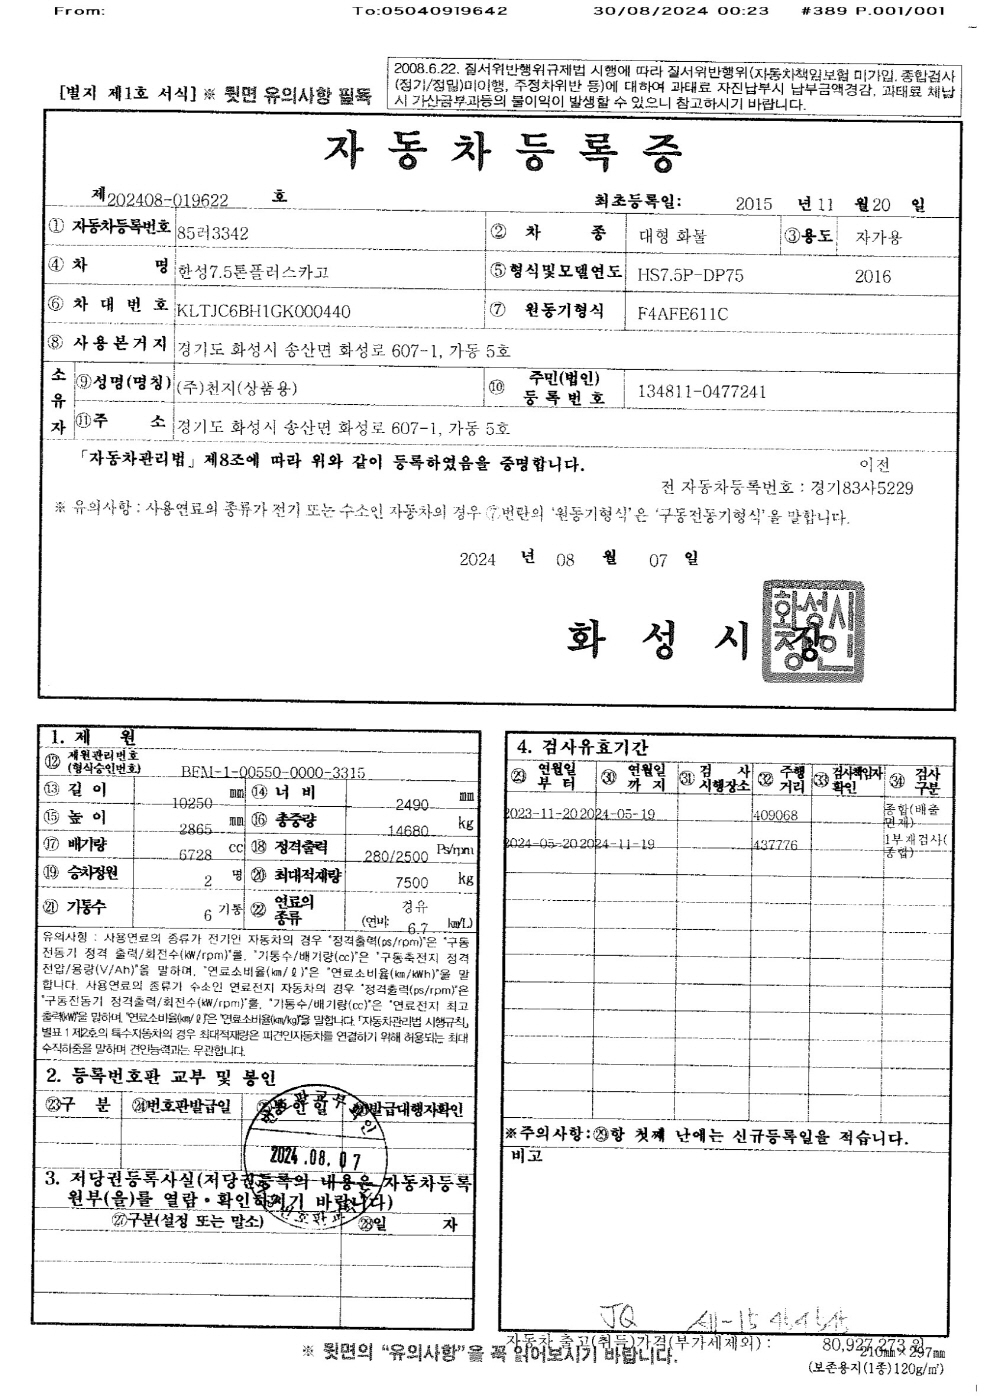 From: To:05040919642 30/08/2024 00:23 #389 P.001/001
[별지 제1호 서식] ※ 뒷면 유의사항 필독
2008.6.22. 질서위반행위규제법 시행에 따라 질서위반행위(자동차책임보험 미가입, 종합검사
(정기/정밀)미이행, 주정차위반 등)에 대하여 과태료 자진납부시 납부금액경감, 과태료 체납
시 가산금부과등의 불이익이 발생할 수 있으니 참고하시기 바랍니다.
자동차등록증
제202408-019622 호 최초등록일: 2015 년 11 월 20 일
① 자동차등록번호 85러3342 ② 차 종 대형 화물 ③용도 자가용
④ 차 명 한성7.5톤플러스카고 ⑤형식및모델연도 HS7.5P-DP75 2016
⑥ 차 대 번 호 KLTJC6BH1GK000440 ⑦ 원동기형식 F4AFE611C
⑧ 사용본거지 경기도 화성시 송산면 화성로 607-1, 가동 5호
소유자 ⑨성명(명칭) (주)천지(상품용) ⑩ 주민(법인)등록번호 134811-0477241
⑪주 소 경기도 화성시 송산면 화성로 607-1, 가동 5호
「자동차관리법」 제8조에 따라 위와 같이 등록하였음을 증명합니다. 이전
전 자동차등록번호 : 경기83사5229
※ 유의사항 : 사용연료의 종류가 전기 또는 수소인 자동차의 경우 ⑦번란의 '원동기형식'은 '구동전동기형식'을 말합니다.
2024 년 08 월 07 일
화 성 시 장
화성시장인
1. 제 원
⑫ 제원관리번호 (형식승인번호) BFM-1-00550-0000-3315
⑬ 길 이 10250 mm ⑭ 너 비 2490 mm
⑮ 높 이 2865 mm ⑯ 총중량 14680 kg
⑰ 배기량 6728 cc ⑱ 정격출력 280/2500 Ps/rpm
⑲ 승차정원 2 명 ⑳ 최대적재량 7500 kg
㉑ 기통수 6 기통 ㉒ 연료의 종류 경유 (연비: 6.7 km/L)
유의사항 : 사용연료의 종류가 전기인 자동차의 경우 "정격출력(ps/rpm)"은 "구동
전동기 정격 출력/회전수(kW/rpm)"를, "기통수/배기량(cc)"은 "구동축전지 정격
전압/용량(V/Ah)"을 말하며, "연료소비율(km/ℓ)"은 "연료소비율(km/kWh)"을 말
합니다. 사용연료의 종류가 수소인 연료전지 자동차의 경우 "정격출력(ps/rpm)"은
"구동전동기 정격출력/회전수(kW/rpm)"를, "기통수/배기량(cc)"은 "연료전지 최고
출력(kW)"을 말하며, "연료소비율(km/ℓ)"은 "연료소비율(km/kg)"을 말합니다. 「자동차관리법 시행규칙」
별표 1 제2호의 특수자동차의 경우 최대적재량은 피견인자동차를 연결하기 위해 허용되는 최대
수직하중을 말하며 견인능력과는 무관합니다.
2. 등록번호판 교부 및 봉인
㉓구 분 ㉔번호판발급일 ㉕봉인일 ㉖발급대행자확인
2024.08.07
3. 저당권등록사실(저당권등록의 내용은 자동차등록
원부(을)를 열람·확인하시기 바랍니다)
㉗구분(설정 또는 말소) ㉘일 자
4. 검사유효기간
㉙ 연월일부터 ㉚ 연월일까지 ㉛ 검사시행장소 ㉜ 주행거리 ㉝ 검사책임자확인 ㉞ 검사구분
2023-11-20 2024-05-19 409068 종합(배출면제)
2024-05-20 2024-11-19 437776 1부재검사(종합)
※주의사항:㉙항 첫째 난에는 신규등록일을 적습니다.
비고
JQ
자동차 출고(취득)가격(부가세제외) : 80,927,273 원
※ 뒷면의 "유의사항"을 꼭 읽어보시기 바랍니다.
210mm×297mm
(보존용지(1종)120g/㎡)